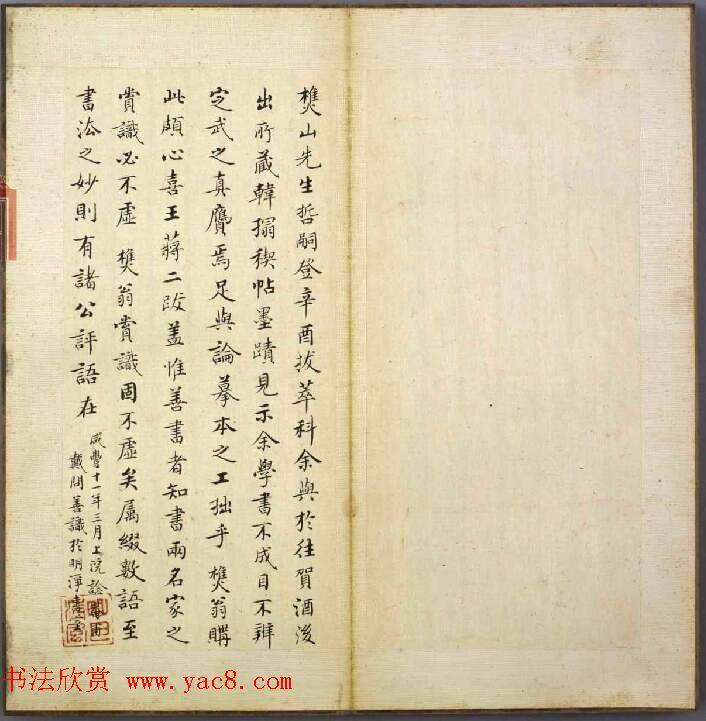 樵山先生哲嗣登辛酉拔萃科余與於往賀酒後
出所藏韓搨稧帖墨蹟見示余學書不成目不辨
定武之真贗焉足與論摹本之工拙乎樵翁購
此頗心喜王蔣二跋蓋惟善書者知書兩名家之
賞識必不虛樵翁賞識固不虛矣屬綴數語至
書法之妙則有諸公評語在
咸豐十一年三月上浣
戴開善識於明淨
书法欣赏 www.yac8.com